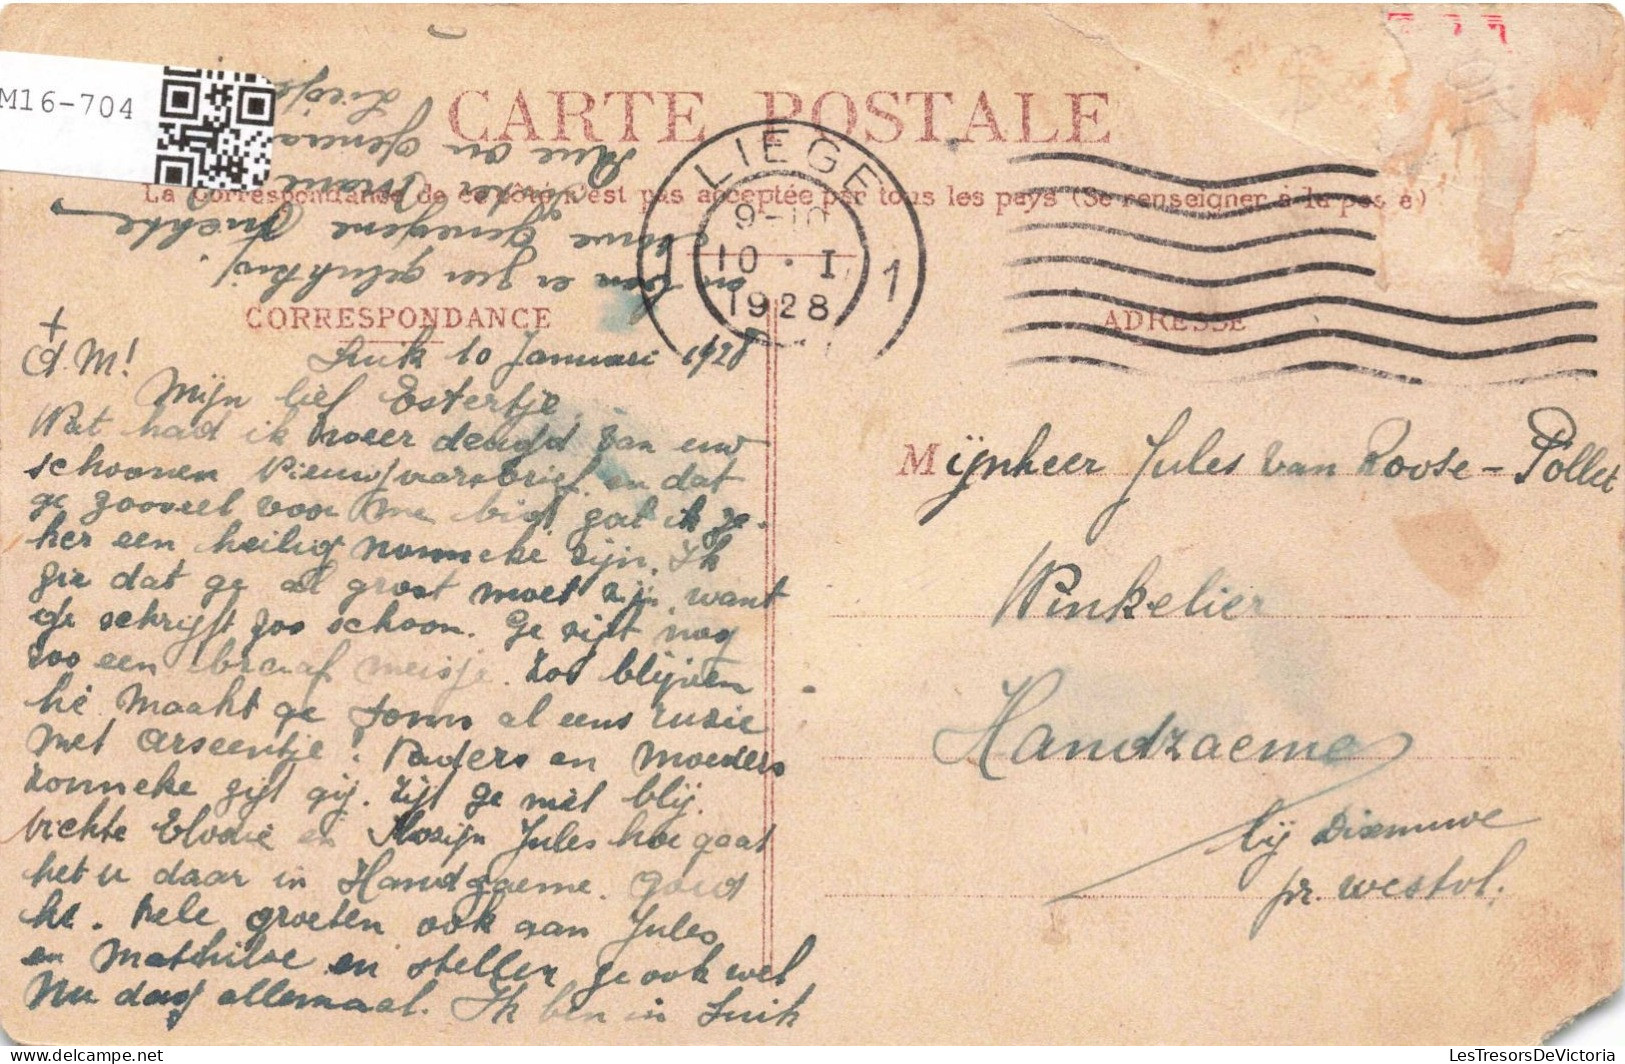 M16-704
CARTE POSTALE
La Correspondance de ce côté n'est pas acceptée par tous les pays (Se renseigner à la poste)
LIEGE 1
9-10
10 · I
1928
CORRESPONDANCE
ADRESSE
Luik 10 Januari 1928
+
A.M!
Mijn lief Estertje
Wat had ik veel deugd van uw
schoonen Nieuwjaarsbrief en dat
ge zooveel voor me bidt gat ik ze-
ker een heilig nonneke zijn. Ik
zie dat ge al groot moet zijn, want
ge schrijft zoo schoon. Ge zijt nog
zoo een braaf meisje. Zoo blijven
hé. Maakt ge soms al eens ruzie
met Arseentje! Vaders en moeders
zonneke zijt gij. Zijt ge niet blij.
Nichte Elodie en Kozijn Jules hoe gaat
het u daar in Handzaeme. Goed
hé. Vele groeten ook aan Jules
en Mathilde en stellen ze ook wel
Nu dag allemaal. Ik ben in Luik
en ben er zeer gelukkig.
Uwe genegene Nichte
Rue du
Mijnheer Jules Van Roose-Pollet
Winkelier
Handzaeme
bij Dixmuwe
pr. westvl.
LesTresorsDeVictoria.com